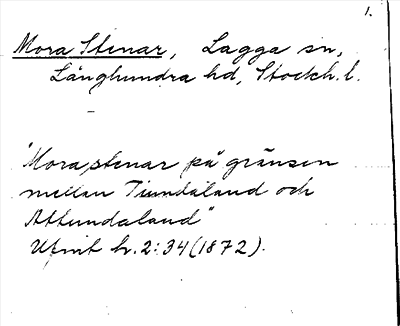 1.
Mora Stenar, Lagga sn,
Långhundra hd, Stockh. l.
"Mora stenar på gränsen
mellan Tiundaland och
Attundaland"
h. 2: 34 (1872).